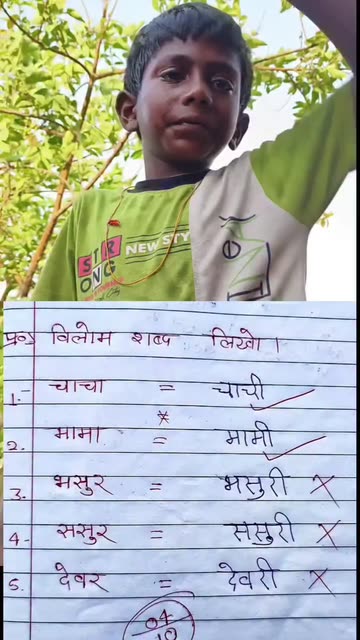 STR
ONG
NEW STY
प्र०1 विलोम शब्द लिखो।
1. चाचा = चाची
2. मामा = मामी
3. भसुर = भसुरी
4. ससुर = ससुरी
5. देवर = देवरी
04
10